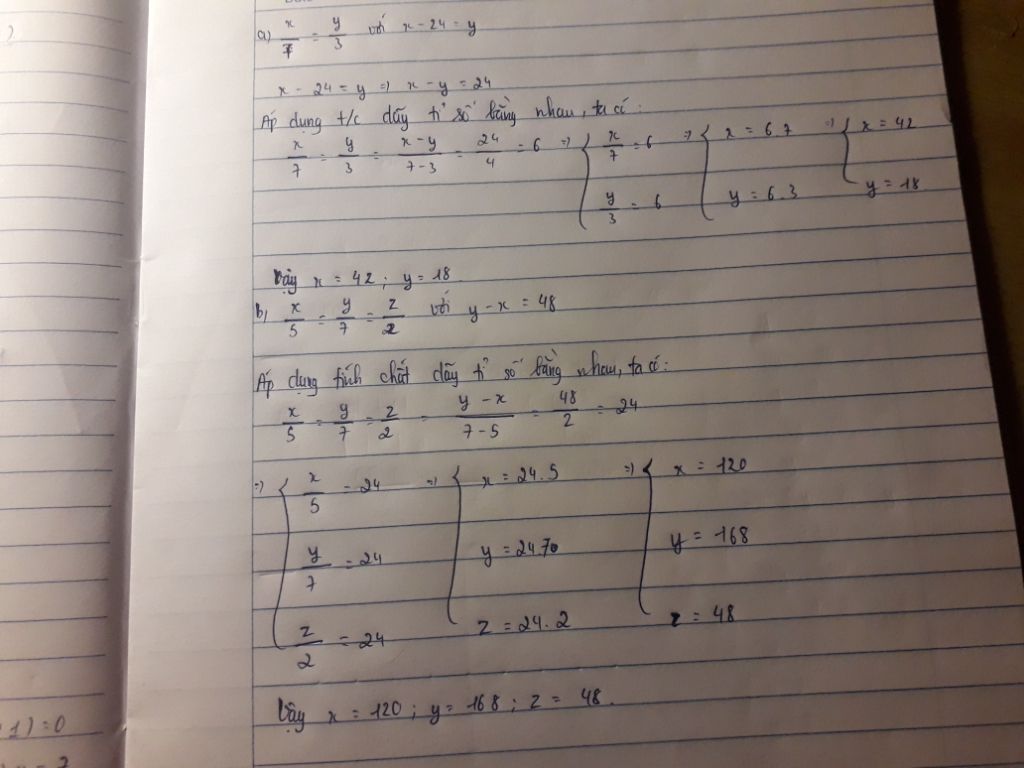 a) x/7 = y/3 với x - 24 = y
x - 24 = y => x - y = 24
Áp dụng t/c dãy tỉ số bằng nhau, ta có:
x/7 = y/3 = (x-y)/(7-3) = 24/4 = 6 => { x/7 = 6 => { x = 6.7 => { x = 42
y/3 = 6 y = 6.3 y = 18
Vậy x = 42 ; y = 18
b, x/5 = y/7 = z/2 với y - x = 48
Áp dụng tích chất dãy tỉ số bằng nhau, ta có:
x/5 = y/7 = z/2 = (y - x)/(7-5) = 48/2 = 24
=> { x/5 = 24 => { x = 24.5 => { x = 120
y/7 = 24 y = 24.7 y = 168
z/2 = 24 z = 24.2 z = 48
Vậy x = 120 ; y = 168 ; z = 48.
1) = 0